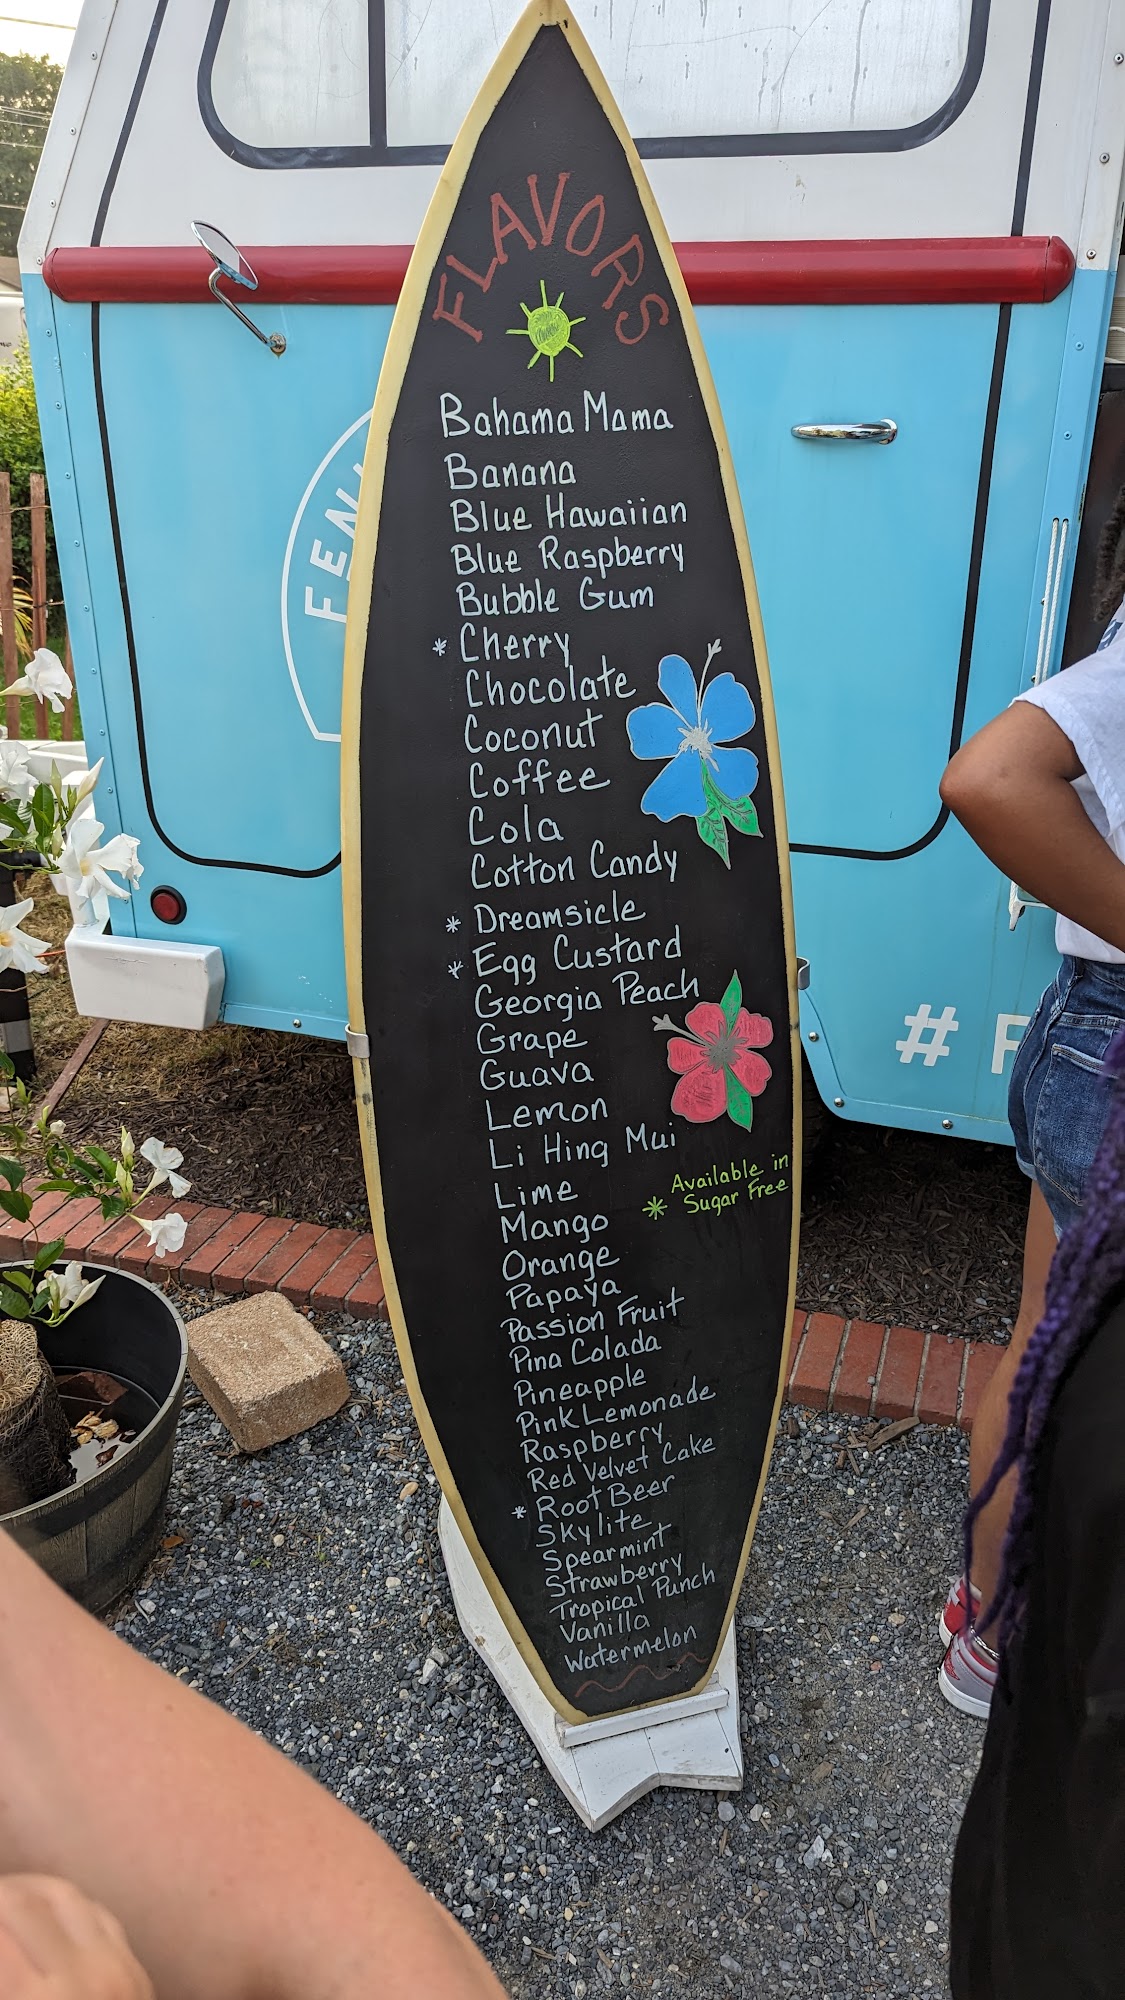 FLAVORS
Bahama Mama
Banana
Blue Hawaiian
Blue Raspberry
Bubble Gum
* Cherry
Chocolate
Coconut
Coffee
Cola
Cotton Candy
* Dreamsicle
* Egg Custard
Georgia Peach
Grape
Guava
Lemon
Li Hing Mui
Lime
Mango
Orange
Papaya
Passion Fruit
Pina Colada
Pineapple
Pink Lemonade
Raspberry
Red Velvet Cake
* Root Beer
Skylite
Spearmint
Strawberry
Tropical Punch
Vanilla
Watermelon
* Available in
Sugar Free
FEN
# F